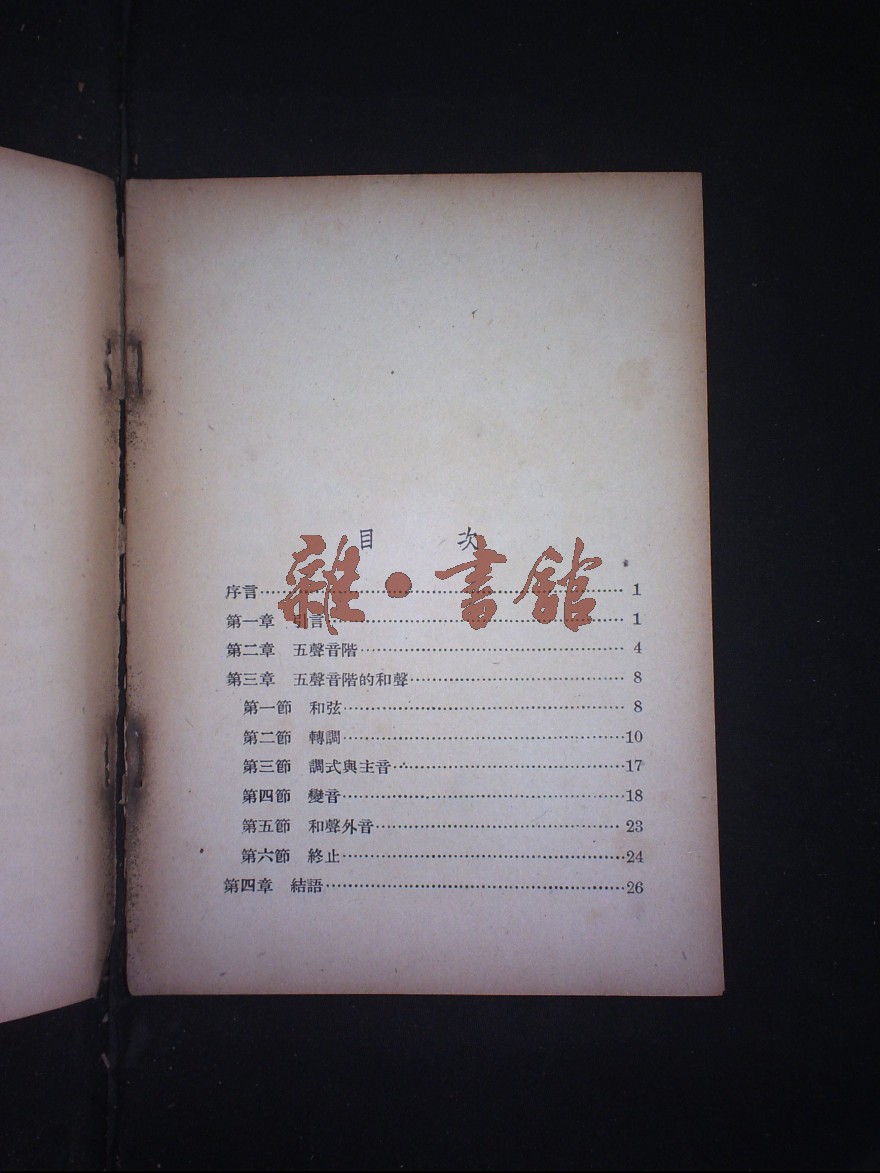 目 次
雜·書館
序言……1
第一章 引言……1
第二章 五聲音階……4
第三章 五聲音階的和聲……8
第一節 和弦……8
第二節 轉調……10
第三節 調式與主音……17
第四節 變音……18
第五節 和聲外音……23
第六節 終止……24
第四章 結語……26